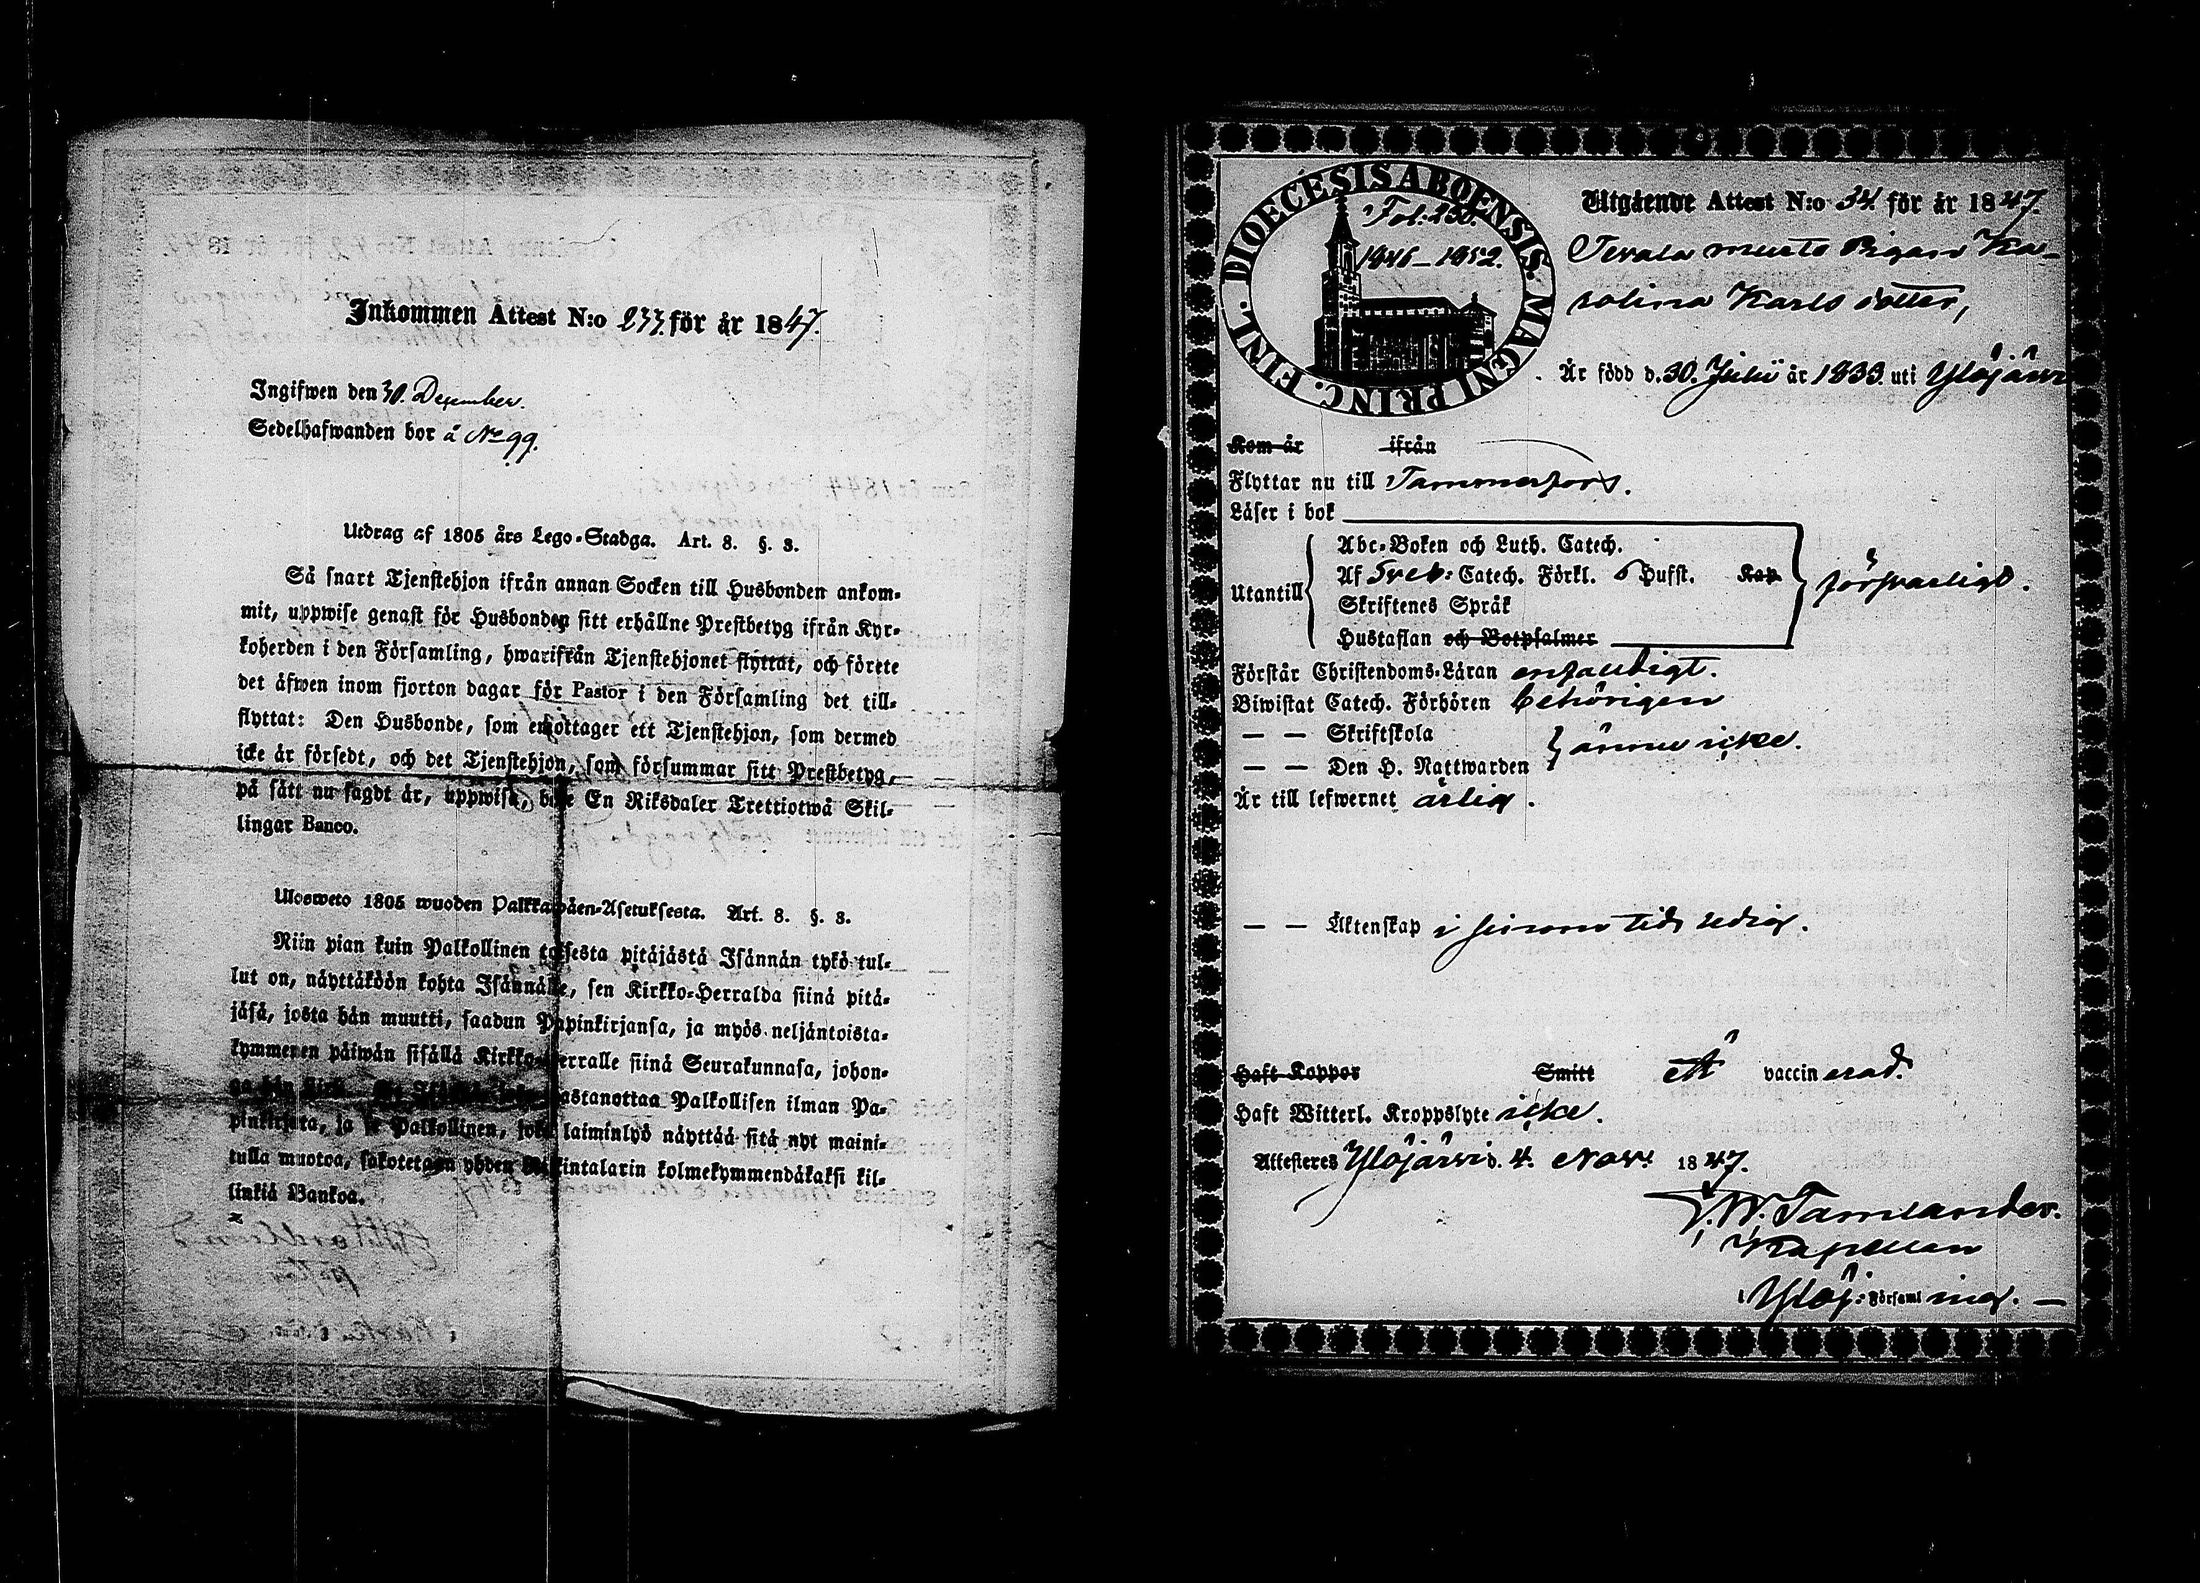 Inkommen Attest N:o 233. för år 1847.
Ingifwen den 30. December.
Sedelhafwanden bor å No 99.
Utdrag af 1805 års Lego-Stadga. Art. 8. §. 3.
Så snart Tjenstehjon ifrån annan Socken till Husbonden ankom-
mit, uppwise genast för Husbonden sitt erhållne Prestbetyg ifrån Kyr-
koherden i den Församling, hwarifrån Tjenstehjonet flyttat, och förete
det äfwen inom fjorton dagar för Pastor i den Församling det till-
flyttat: Den Husbonde, som emottager ett Tjenstehjon, som dermed
icke är försedt, och det Tjenstehjon, som försummar sitt Prestbetyg,
på sätt nu sagdt är, uppwisa, böte En Riksdaler Trettiotwå Skil-
lingar Banco.
Ulosweto 1805 wuoden Palkkawäen-Asetuksesta. Art. 8. §. 3.
Niin pian kuin Palkollinen toisesta pitäjästä Isännän tykö tul-
lut on, näyttäköön kohta Isännälle, sen Kirkko-Herralda siinä pitä-
jäsä, josta hän muutti, saadun Papinkirjansa, ja myös neljäntoista-
kymmenen päiwän sisällä Kirkko-Herralle siinä Seurakunnasa, johon-
ga hän
astanottaa Palkollisen ilman Pa-
pinkirjata, ja se Palkollinen, joka laiminlyö näyttää sitä nyt maini-
tulla muotoa, sakotetaan yhden Riikintalarin kolmekymmendäkaksi kil-
linkiä Bankoa.
DIOECESIS ABOENSIS MAGNI PRINC. FINL.
Fol. 250.
1846–1852.
Utgående Attest N:o 34. för år 1847.
Pigan Ka-
rolina Karls dotter,
Är född d. 30. Julii år 1833. uti Ylöjärvi
Kom år ifrån
Flyttar nu till Tammerfors.
Läser i bok
Abc-Boken och Luth. Catech.
Af Sveb: Catech. Förkl. 6 Hufst. Kap
Utantill
försvarligt.
Skriftenes Språk
Hustaflan och Botpsalmer
Förstår Christendoms-Läran enfaldigt.
Biwistat Catech. Förhören behörigen
— — Skriftskola
ännu icke.
— — Den H. Nattwarden
Är till lefwernet ärlig.
— — Äktenskap i sinom tid ledig.
Haft Koppor Smitt ett vaccinerad.
Haft Witterl. Kroppslyte icke.
Attesteres Ylöjärvi d. 4. Nov. 1847.
W. Tamlander.
Kapellan
i Ylöj: Församling. —